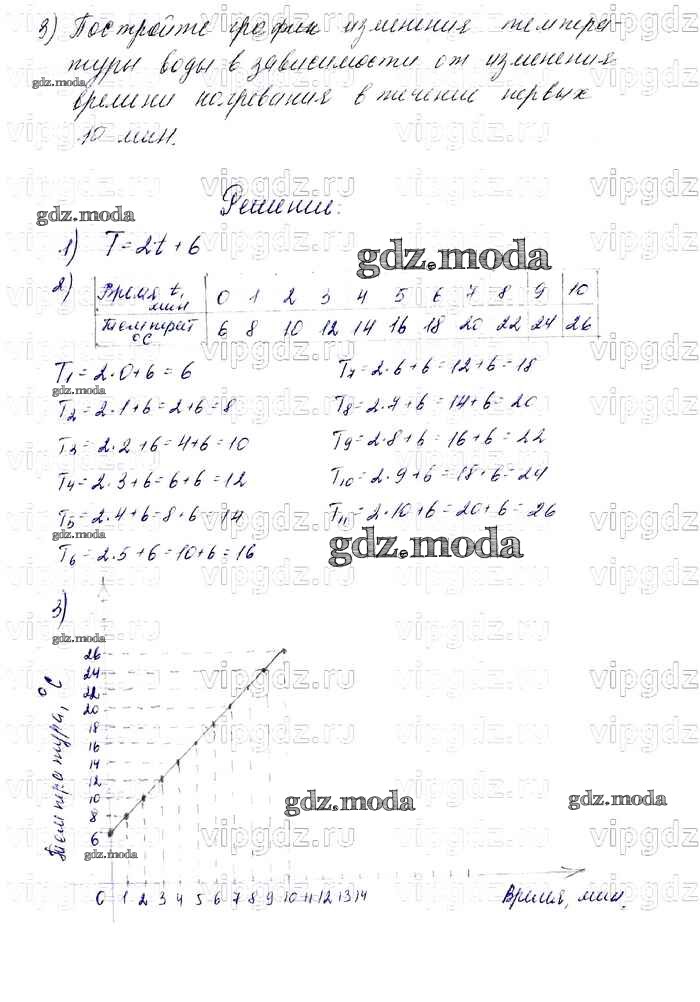 3) Постройте график изменения темпера-
туры воды в зависимости от изменения
времени нагревания в течение первых
10 мин.
Решение:
1) T = 2t + 6
2) Время t, мин 0 1 2 3 4 5 6 7 8 9 10
Темпрат °C 6 8 10 12 14 16 18 20 22 24 26
T1 = 2·0+6 = 6
T2 = 2·1+6 = 2+6 = 8
T3 = 2·2+6 = 4+6 = 10
T4 = 2·3+6 = 6+6 = 12
T5 = 2·4+6 = 8+6 = 14
T6 = 2·5+6 = 10+6 = 16
T7 = 2·6+6 = 12+6 = 18
T8 = 2·7+6 = 14+6 = 20
T9 = 2·8+6 = 16+6 = 22
T10 = 2·9+6 = 18+6 = 24
T11 = 2·10+6 = 20+6 = 26
3)
Температура, °C
26
24
22
20
18
16
14
12
10
8
6
0 1 2 3 4 5 6 7 8 9 10 11 12 13 14
Время, мин.
gdz.moda
vipgdz.ru